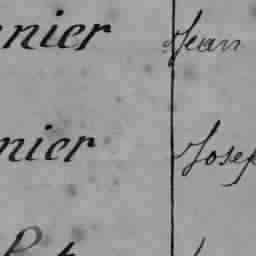 nier Jean
nier Josep